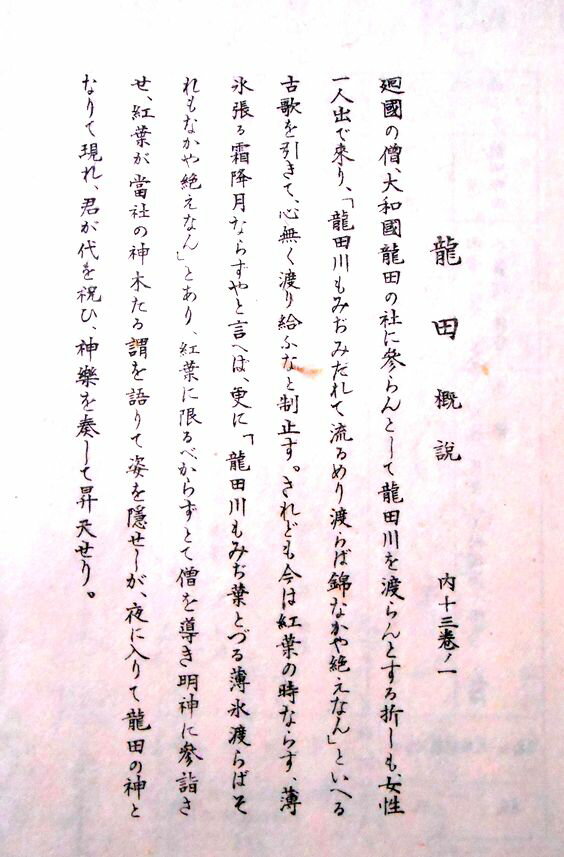 龍田概説
内十三巻ノ一
廻國の僧、大和國龍田の社に參らんとして龍田川を渡らんとする折しも、女性
一人出で來り、「龍田川もみぢみだれて流るめり渡らば錦なかや絶えなん」といへる
古歌を引きて、心無く渡り給ふなと制止す。されども今は紅葉の時ならず、薄
氷張る霜降月ならずやと言へば、更に「龍田川もみぢ葉とづる薄氷渡らばそ
れもなかや絶えなん」とあり、紅葉に限るべからずとて僧を導き明神に參詣さ
せ、紅葉が當社の神木たる謂を語りて姿を隱せしが、夜に入りて龍田の神と
なりて現れ、君が代を祝ひ、神樂を奏して昇天せり。